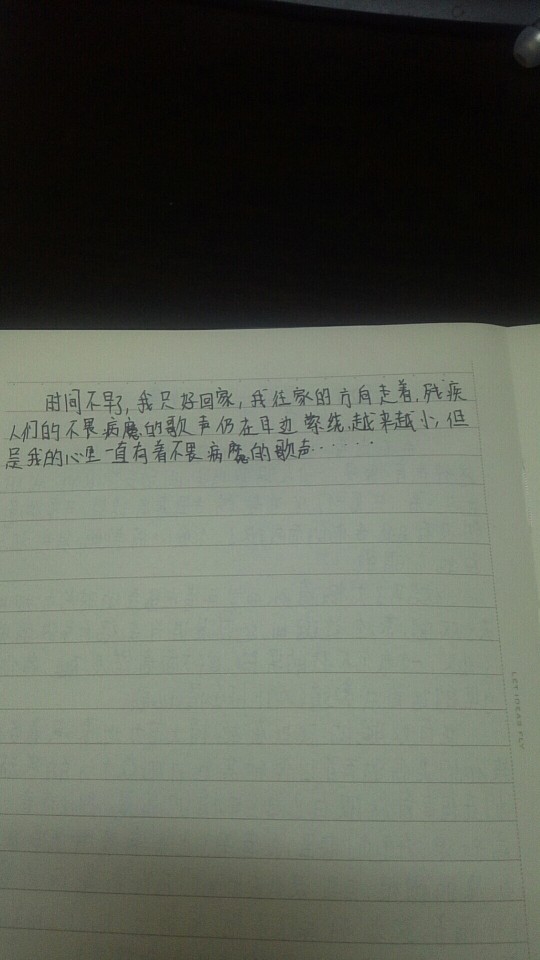 时间不早了,我只好回家,我往家的方向走着,残疾
人们的不畏病魔的歌声仍在耳边萦绕,越来越小,但
是我的心里一直有着不畏病魔的歌声······
LET IDEAS FLY